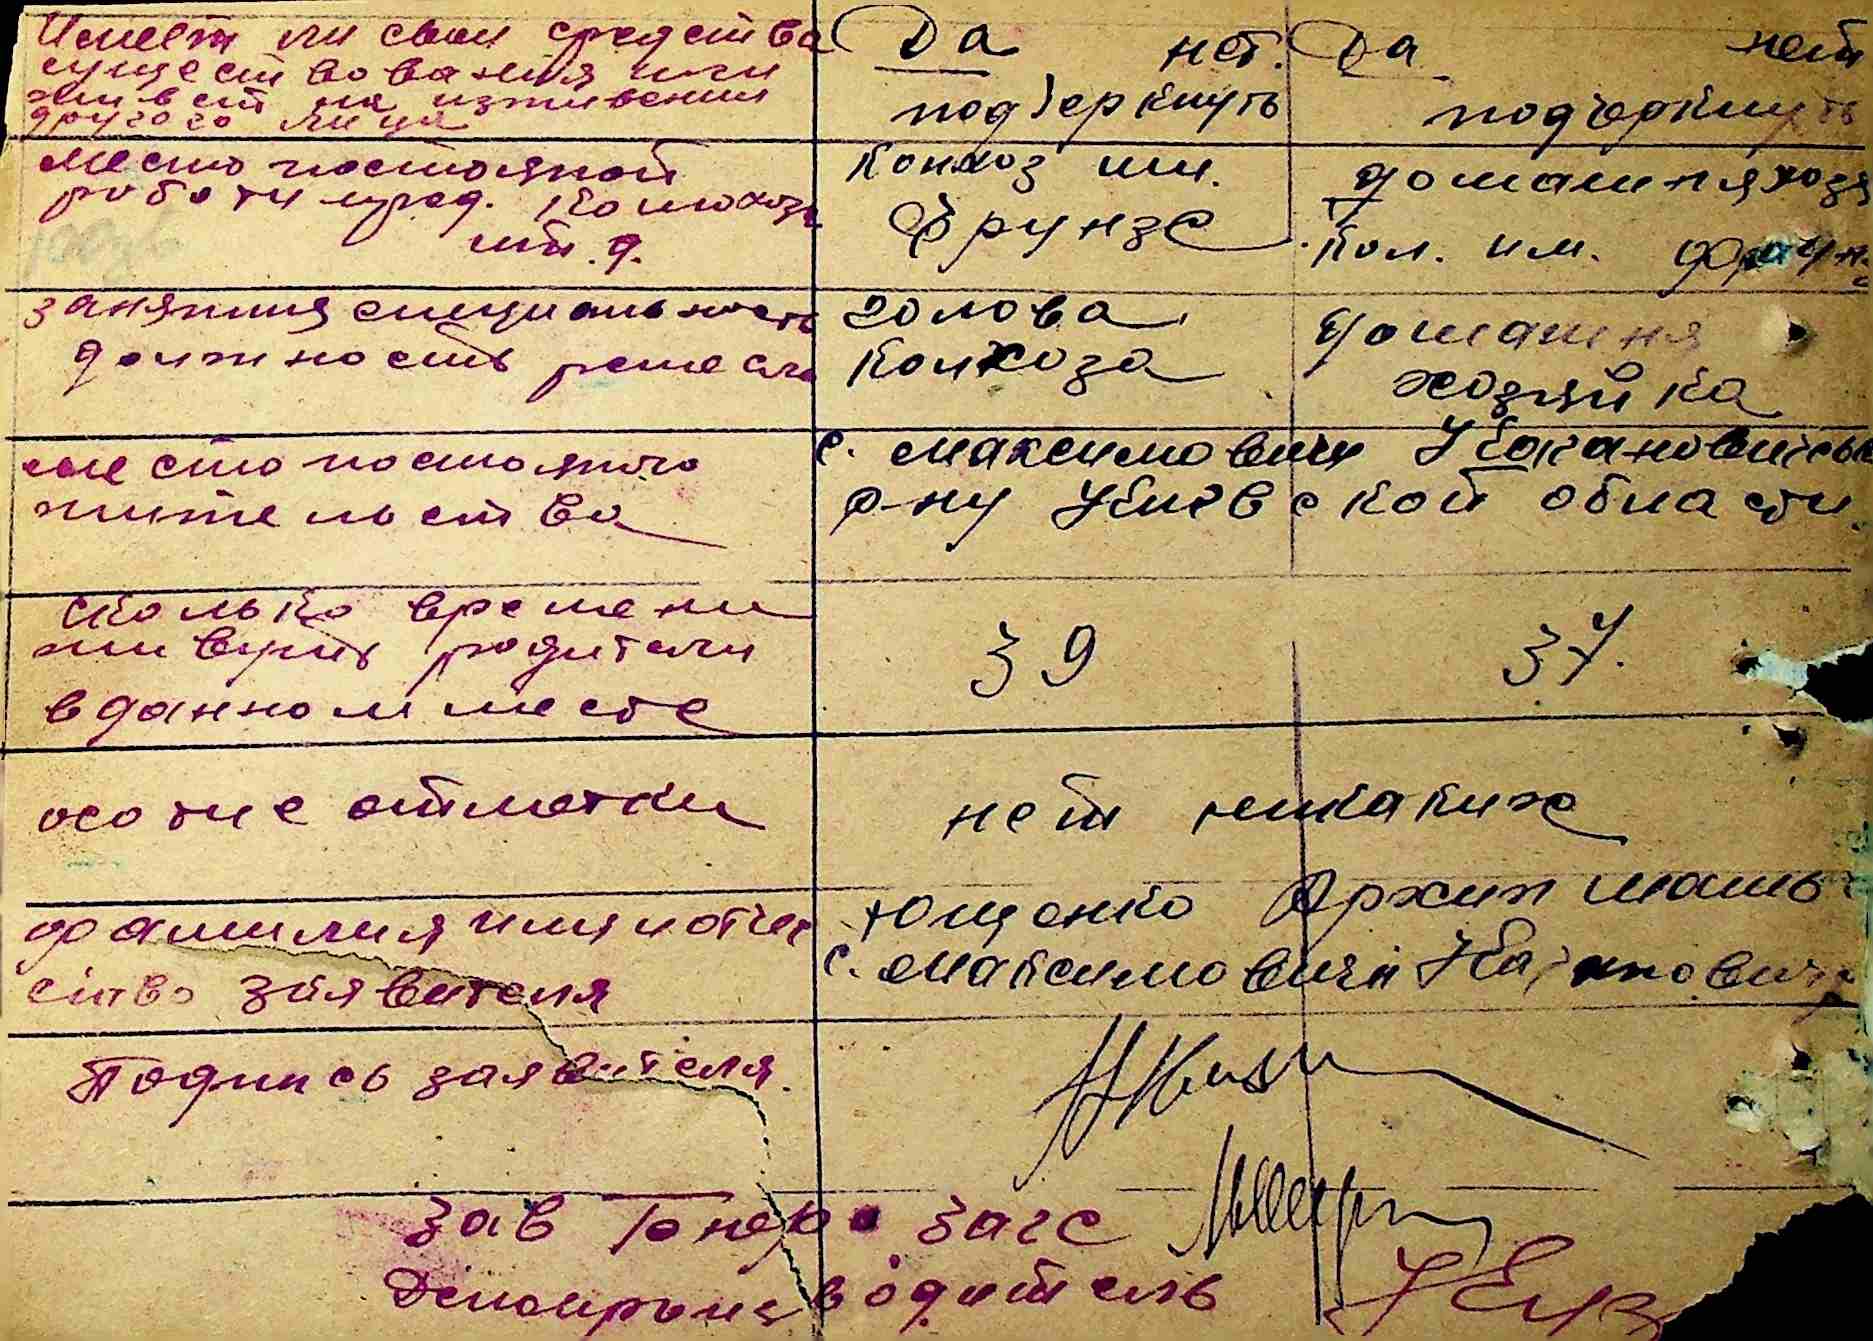 Имеет ли свои средства
существования или
живет на изживении
другого лица
Да нет. Да нет
подчеркнуть подчеркнуть
место постояной
роботи пред. Колхоза
ит. д.
Колхоз им.
Фрунзе
домашня хозя
Кол. им. Фрун
заняттия специальность
должность ремесло
голова
колхоза
домашня
хозяйка
место постояного
жительства
с. Максимовичи Кагановичськ
р-ну Киевской области.
сколько времени
живуть родители
в данном месте
39 37.
осотие отметки
нет никаких
фамилия имя и отче
ство заявителя
Ющенко Архип
с. Максимовичи
Подпись заявителя.
зав Бюро загс
Делопроизводитель